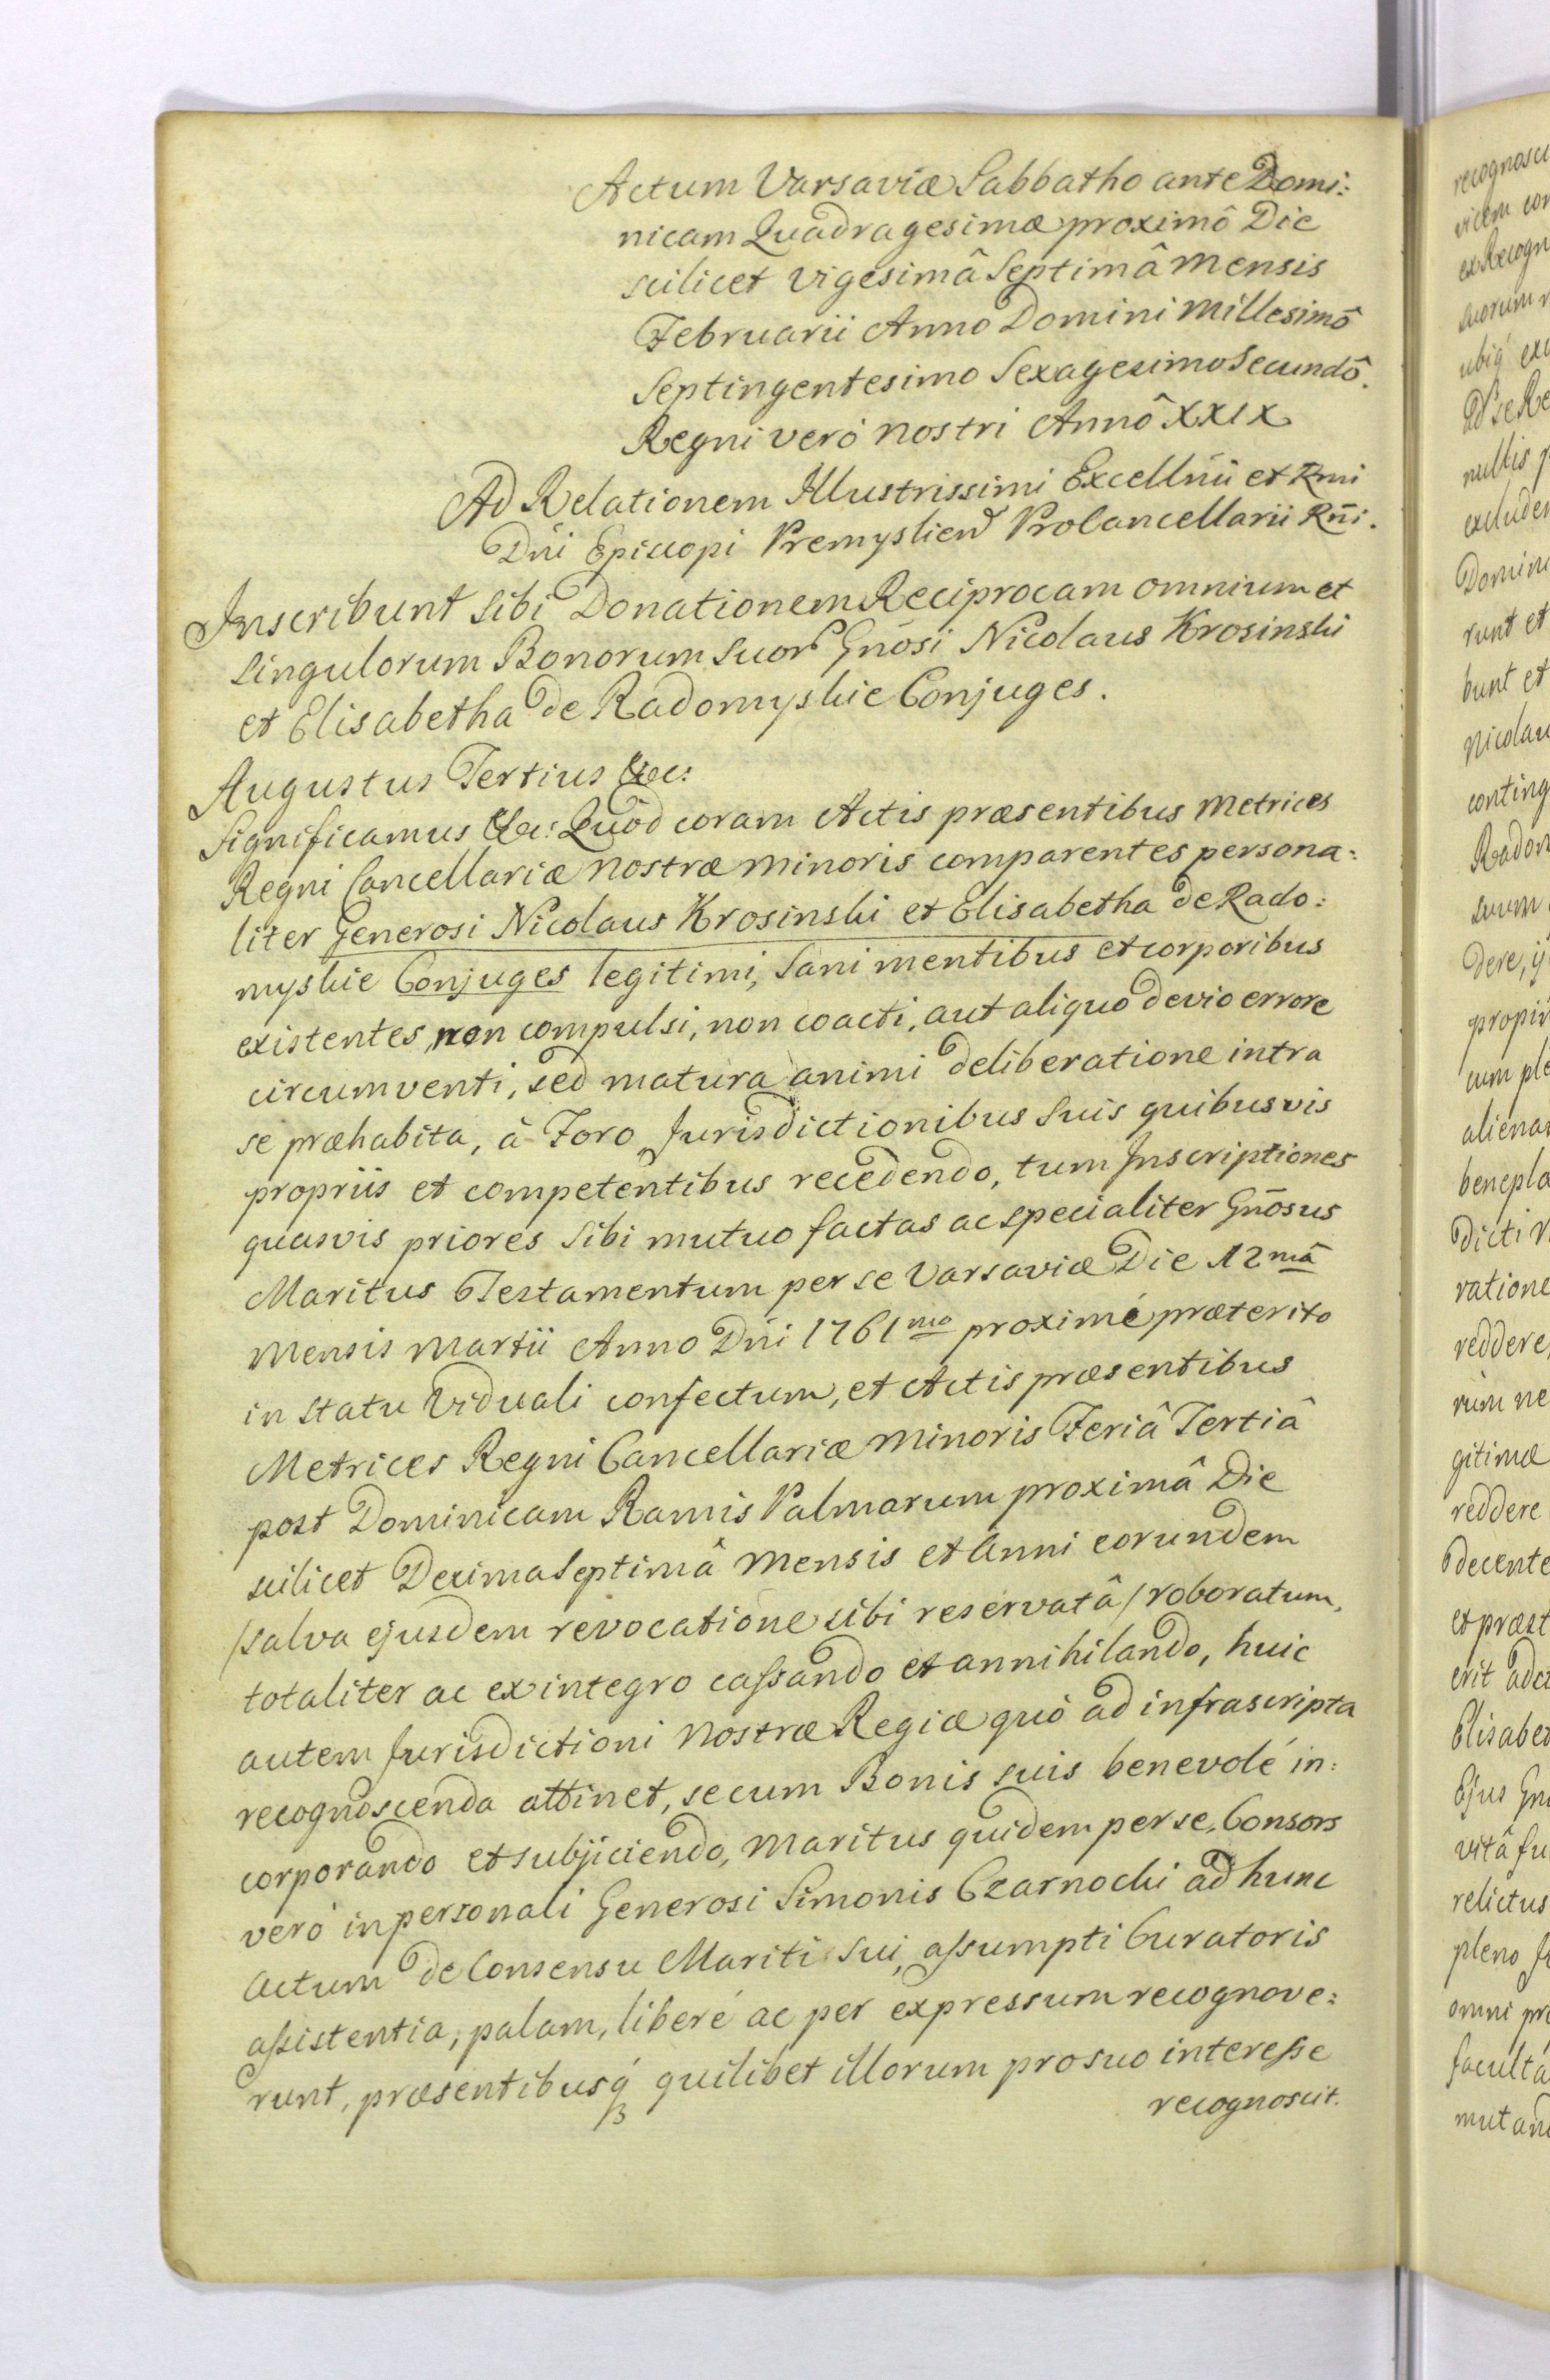 Actum Varsaviæ Sabbatho ante Domi:
nicam Quadragesimæ proximô Die
scilicet Vigesimâ Septimâ Mensis
Februarii Anno Domini Millesimô
Septingentesimo Sexagesimo Secundô.
Regni veró nostri Annô XXIX
Ad Relationem Illustrissimi Excellm̃i et Rmi
Dñi Episcopi Premyslien̄ ProCancellarii Rñi.
Inscribunt sibi Donationem Reciprocam omnium et
singulorum Bonorum suor̃ Gñosi Nicolaus Krosinski
et Elisabetha de Radomyskie Conjuges.
Augustus Tertius &c:
Significamus &c: Quôd coram Actis præsentibus Metrices
Regni Cancellariæ nostræ minoris comparentes persona:
liter Generosi Nicolaus Krosinski et Elisabetha de Rado:
myskie Conjuges legitimi, sani mentibus et corporibus
existentes, non compulsi, non coacti, aut aliquo devio errore
circumventi, sed matura animi deliberatione intra
se præhabita, à Foro Jurisdictionibus suis quibusvis
propriis et competentibus recedendo, tum Inscriptiones
quasvis priores sibi mutuo factas ac specialiter Gñosus
Maritus Testamentum per se Varsaviæ Die 12mâ
mensis martii Anno Dñi 1761mo proximé præterito
in statu Viduali confectum, et Actis præsentibus
Metrices Regni Cancellariæ Minoris Feriâ Tertiâ
post Dominicam Ramis Palmarum proximâ Die
scilicet Decima Septimâ Mensis et Anni eorundem
/salva ejusdem revocatione sibi reservatâ/ roboratum,
totaliter ac ex integro caſsando et annihilando, huic
autem Jurisdictioni nostræ Regiæ quó ad infrascripta
recognoscenda attinet, se cum Bonis suis benevolé in:
corporando et subjiciendo, Maritus quidem per se, Consors
veró in personali Generosi Simonis Czarnocki ad hunc
actum de Consensu Mariti sui, aſsumpti Curatoris
aſsistentia, palam, liberé ac per expressum recognove:
runt, præsentibusq́ꝫ quilibet illorum pro suo intereſse
recognoscit.